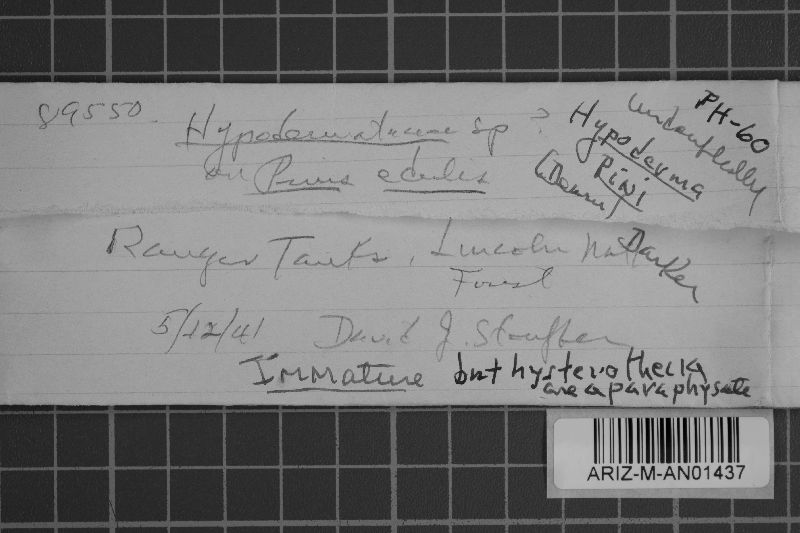 89550.
Hypodermataceae sp ?
on Pinus edulis
Ranger Tanks, Lincoln Natl
Forest
5/12/41 David J. Stouffer
Immature but hysterothecia
are aparaphysate
PH-60
Undoubtedly
Hypoderma
Pini
(Dearn)
Darker
ARIZ-M-AN01437